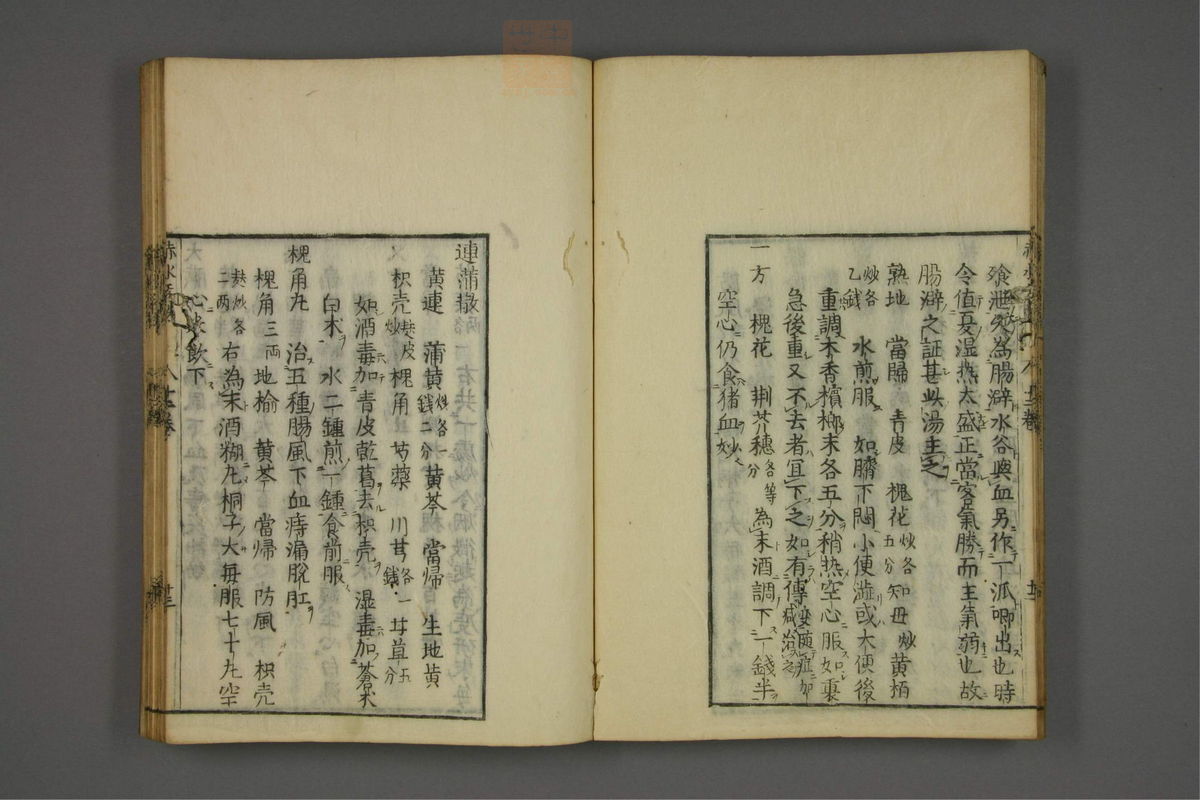 飱泄久為腸澼水谷與血另作一派唧出也時
令值夏湿熱太盛正當客氣勝而主氣弱也故
腸澼之証甚此湯主之
熟地 當歸 青皮 槐花炒各五分 知母炒 黄栢
炒各乙錢 水煎服 如臍下悶小便澁或大便後
重調木香檳榔末各五分稍熱空心服如裏
急後重又不去者宜下之如有傳変随症加减治之
一方 槐花 荆芥穗各等分 為末酒調下一錢半
空心仍食猪血妙
連蒲散
黄連 蒲黄炒各一錢二分 黄芩 當歸 生地黄
枳壳麸皮炒 槐角 芍藥 川芎各一錢 甘草五分
如酒毒加青皮乾葛去枳壳 湿毒加蒼术
白术 水二鍾煎一鍾食前服
槐角九 治五種腸風下血痔漏脫肛
槐角三兩 地榆 黄芩 當歸 防風 枳壳
麸炒各二两 右為末酒糊九桐子大每服七十九空
心米飲下